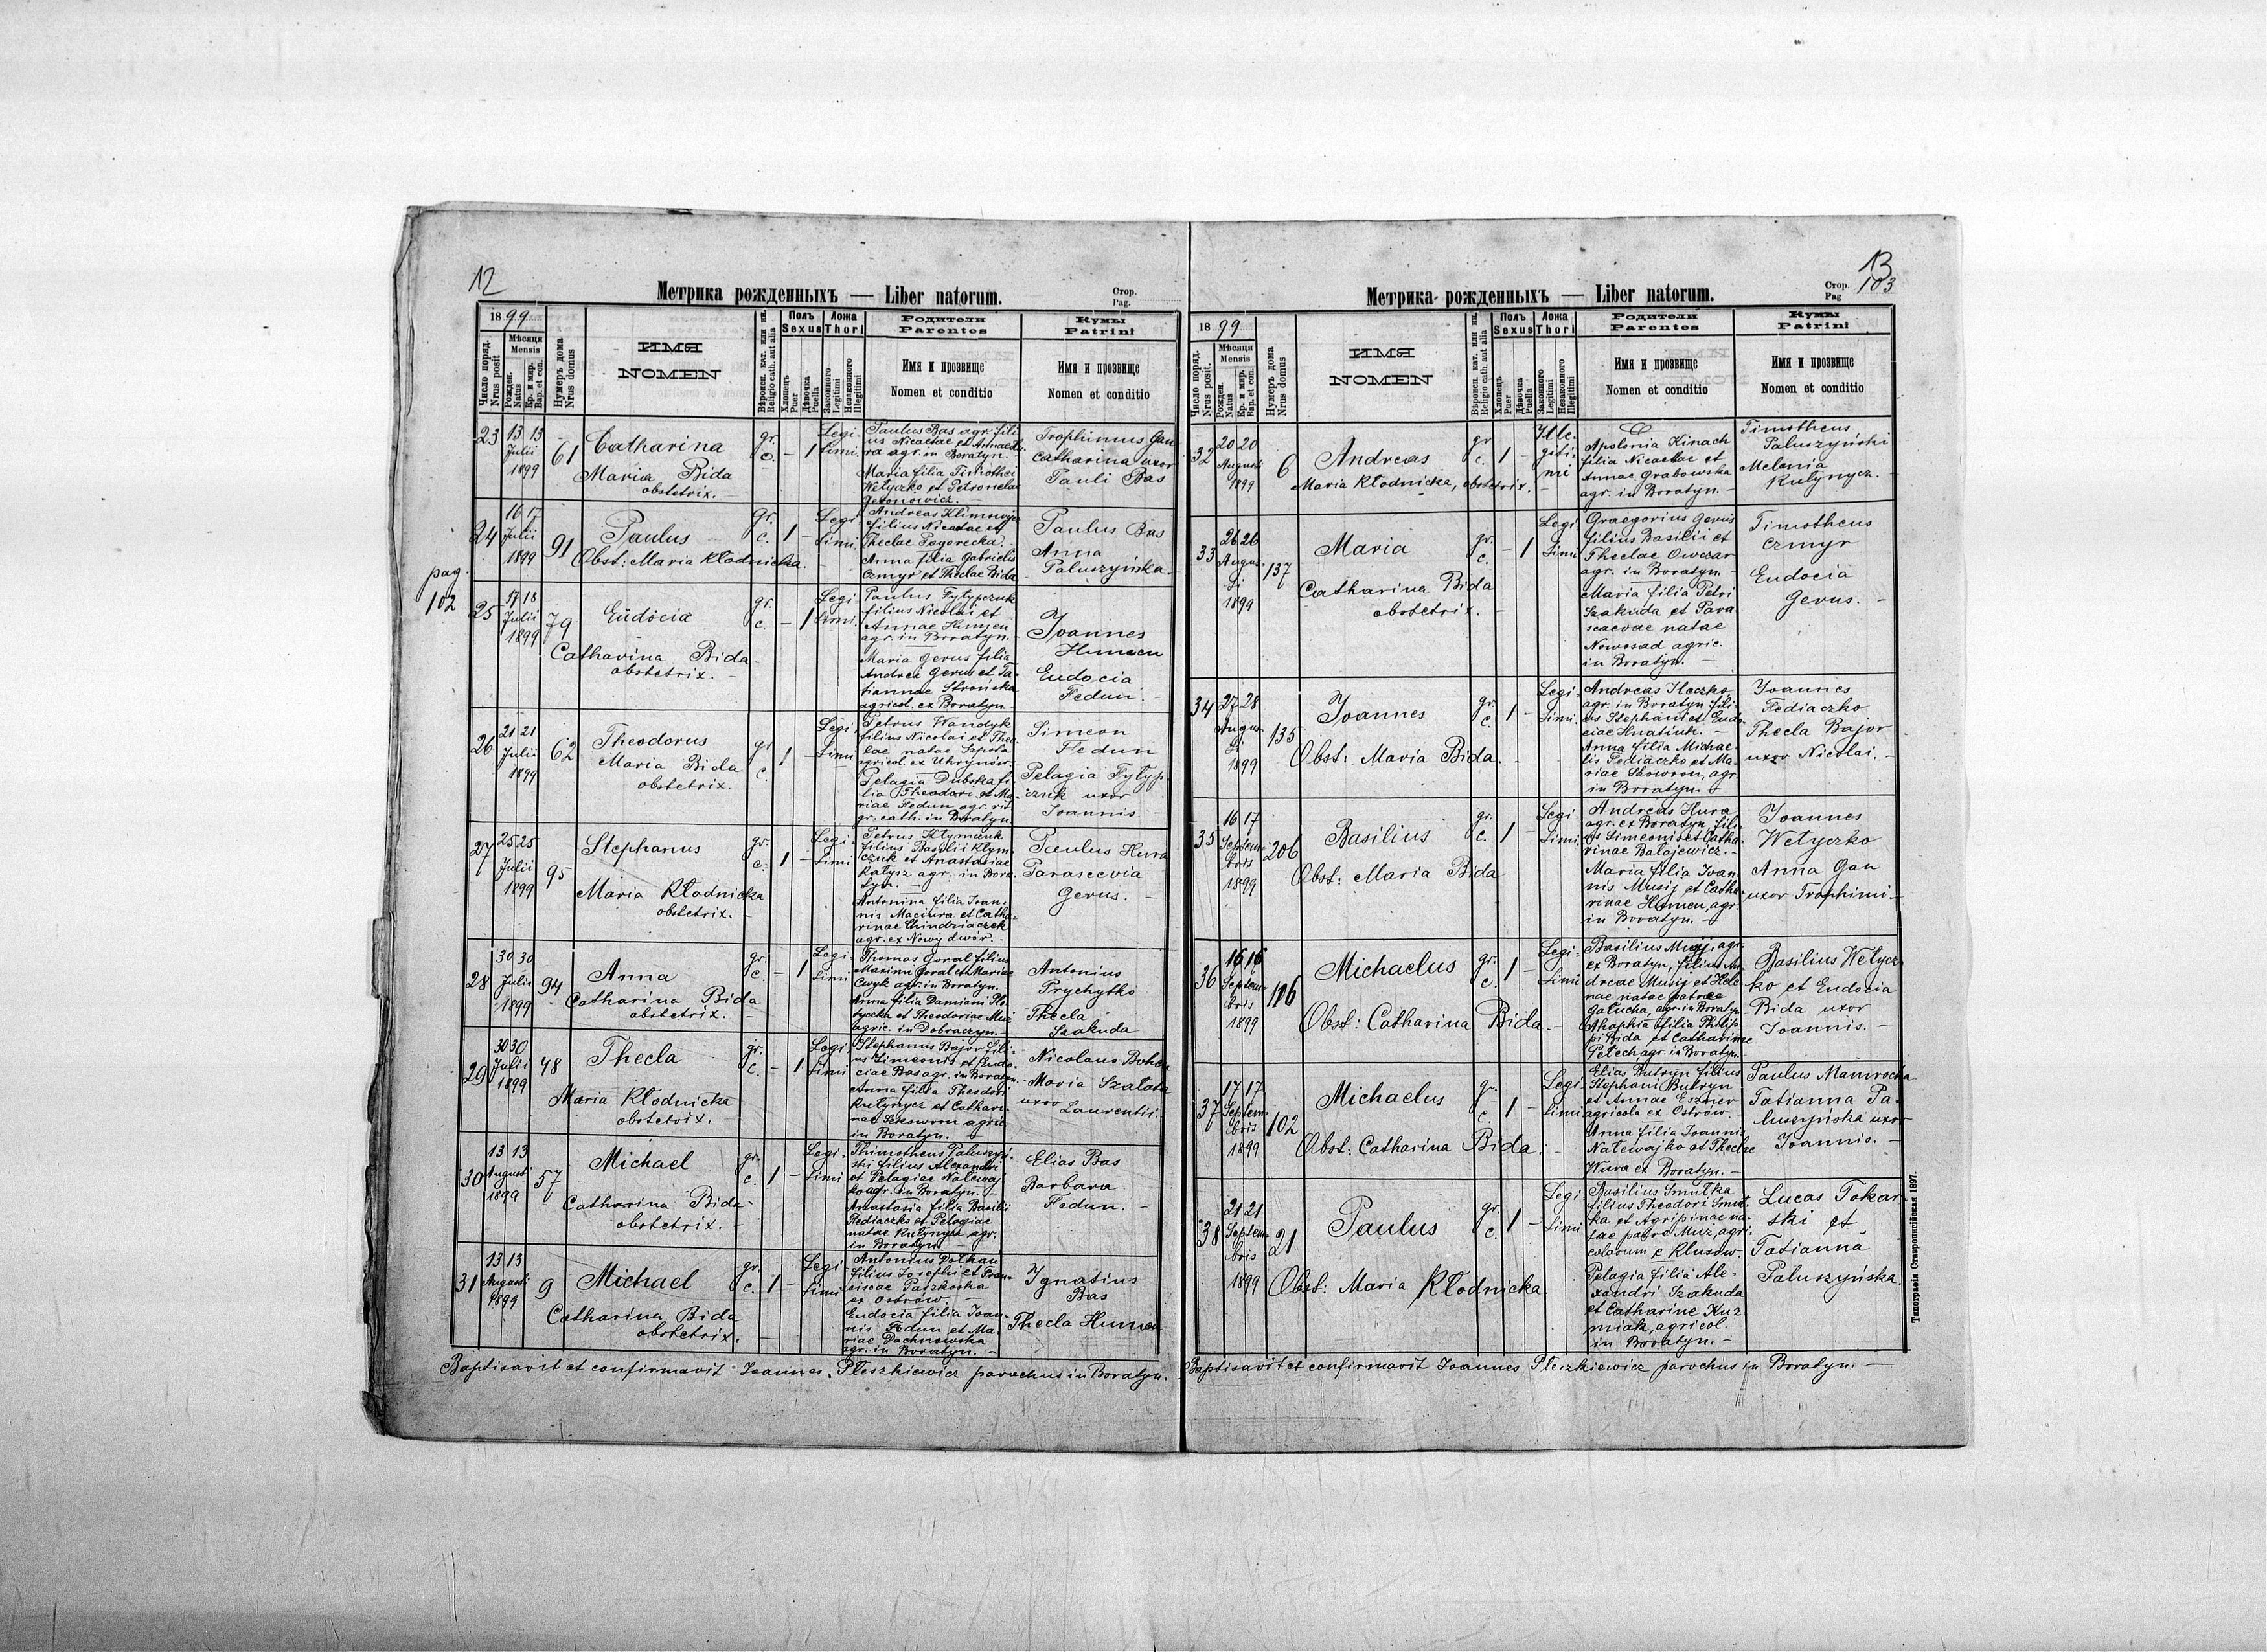 12
Метрика рожденныхъ — Liber natorum.
Стор.
Pag.
1899
Число поряд.
Nrus posit
Мѣсяця
Mensis
Рожден.
Natus
Кр. и мѵр.
Bap. et con.
Нумеръ дома
Nrus domus
ИМЯ
NOMEN
Вѣроисп. кат. или ин.
Religio cath. aut alia
Полъ
Sexus
Хлопецъ
Puer
Дѣвочка
Puella
Ложа
Thori
Законного
Legitimi
Незаконного
Illegitimi
Родители
Parentes
Имя и прозвище
Nomen et conditio
Кумы
Patrini
Имя и прозвище
Nomen et conditio
23 13 13 Julii 1899 61
Catharina
Maria Bida
obstetrix.
gr. c. – 1
Legi-
timi.
Paulus Bas agr. fili-
us Nicaetae et Annae
ra agr. in Boratyn.
Maria filia Timothei
Wełyczko et Petronelae
Trophimus Gan
Catharina uxor
Pauli Bas
pag.
102
24 16 17 Julii 1899 91
Paulus
Obst: Maria Kłodnicka.
gr. c. 1 –
Legi-
timi.
Andreas Klimowicz
filius Nicaetae et
Theclae Pogorecka.
Anna filia Gabrielis
Czmyr et Theclae Bida
Paulus Bas
Anna
Paluszyńska.
25 17 18 Julii 1899 79
Eudocia
Catharina Bida
obstetrix. –
gr. c. – 1
Legi-
timi.
Paulus Fyłypczuk
filius Nicolai et
Annae Humen
agr. in Boratyn. –
Maria Gerus filia
Andrei Gerus et Ta-
tiannae Strońska
agricol. ex Boratyn.
Joannes
Humen
Eudocia
Fedun. –
26 21 21 Julii 1899 62
Theodorus
Maria Bida
obstetrix.
gr. c. 1 –
Legi-
timi
Petrus Wandyk
filius Nicolai et Thec-
lae natae Szpota
agricol. ex Uhrynów.
Pelagia Dubska fi-
lia Theodori et Ma-
riae Fedun agr. rit.
gr. cath. in Boratyn.
Simeon
Fedun
Pelagia Fyłyp
czuk uxor
Joannis
27 25 25 Julii 1899 95
Stephanus
Maria Kłodnicka
obstetrix. –
gr. c. 1 –
Legi-
timi
Petrus Kłymczuk
filius Basilii Kłym-
czuk et Anastasiae
Kałysz agr. in Bora-
tyn. –
Antonina filia Joan-
nis Maciura et Catha-
rinae Chindziaczek
agr. ex Nowy dwór. –
Paulus Hura
Parascevia
Gerus. –
28 30 30 Julii 1899 94
Anna
Catharina Bida
obstetrix. –
gr. c. – 1
Legi-
timi
Thomas Goral filius
Maximi Goral et Mariae
Cwyk agr. in Boratyn. –
Anna filia Damiani
et Theodoriae Muz
agric. in Dobraczyn.
Antonius
Prychytko
Thecla
Szakuda
29 30 30 Julii 1899 48
Thecla
Maria Kłodnicka
obstetrix.
gr. c. – 1
Legi-
timi
Stephanus Bajor fili-
us Simeonis et Eudo-
ciae Bas agr. in Boratyn.
Anna filia Theodori
Kułynycz et Cathari-
nae Skoworn agric.
in Boratyn.
Nicolaus Bohen
Maria Szałata
uxor
Laurentii.
30 13 13 Augusti 1899 57
Michael
Catharina Bida
obstetrix. –
gr. c. 1 –
Legi-
timi
Thimotheus Paluszyń-
ski filius Alexandri
et Pelagiae Nalewaj-
ko agr. in Boratyn. –
Anastasia filia Basilii
Fediaczko et Pelagiae
natae Kułynycz agr.
in Boratyn
Elias Bas
Barbara
Fedun. –
31 13 13 Augusti 1899 9
Michael
Catharina Bida
obstetrix. –
gr. c. 1 –
Legi-
timi
Antonius Dołhan
filius Josephi et Fran-
ciscae Paszkoska
ex Ostrów. –
Eudocia filia Joan-
nis Fedun et Ma-
riae Dachnowska
agr. in Boratyn. –
Ignatius
Bas
Thecla Humen
Baptisavit et confirmavit Joannes Pleszkiewicz parochus in Boratyn. –
13
103
Метрика рожденныхъ — Liber natorum.
Стор.
Pag
1899
Число поряд.
Nrus posit.
Мѣсяця
Mensis
Рожден.
Natus
Кр. и мѵр.
Bap. et con.
Нумеръ дома
Nrus domus
ИМЯ
NOMEN
Вѣроисп. кат. или ин.
Religio cath. aut alia
Полъ
Sexus
Хлопецъ
Puer
Дѣвочка
Puella
Ложа
Thori
Законного
Legitimi
Незаконного
Illegitimi
Родители
Parentes
Имя и прозвище
Nomen et conditio
Кумы
Patrini
Имя и прозвище
Nomen et conditio
32 20 20 Augusti 1899 6
Andreas
Maria Kłodnicka, obstetrix. –
gr. c. 1 –
Ille-
giti-
mi
Apolonia Kinach
filia Nicaetae et
Annae Grabowska
agr. in Boratyn. –
Timotheus
Paluszyński
Melania
Kułynycz. –
33 26 26 Augusti 1899 137
Maria
Catharina Bida
obstetrix. –
gr. c. – 1
Legi-
timi
Graegorius Gerus
filius Basilii et
Theclae Owczar
agr. in Boratyn. –
Maria filia Petri
Szakuda et Para
scaevae natae
Nowosad agric.
in Boratyn. –
Timotheus
Czmyr
Eudocia
Gerus. –
34 27 28 Augusti 1899 135
Joannes
Obst: Maria Bida. –
gr. c. 1 –
Legi-
timi.
Andreas Heczko
agr. in Boratyn fili-
us Stephani et Eudo-
ciae Hnatiuk. –
Anna filia Michae-
lis Fediaczko et Ma-
riae Skoworn, agr.
in Boratyn.
Joannes
Fediaczko
Thecla Bajor
uxor Nicolai. –
35 16 17 Septembris 1899 206
Basilius
Obst: Maria Bida
gr. c. 1 –
Legi-
timi.
Andreas Hura
agr. ex Boratyn, fili-
us Simeonis et Catha-
rinae Bałajewicz. –
Maria filia Joan-
nis Musij et Catha-
rinae Humen, agr.
in Boratyn. –
Joannes
Wełyczko
Anna Gan
uxor Trophimi –
36 16 16 Septembris 1899 106
Michaelus
Obst: Catharina Bida. –
gr. c. 1 –
Legi-
timi
Basilius Musij, agr.
ex Boratyn, filius An-
dreae Musij et Hele-
nae natae patre
Gałucha, agr. in Boratyn
Ahaphia filia Philip-
pi Bida et Catharinae
Pełech agr. in Boratyn.
Basilius Wełycz-
ko et Eudocia
Bida uxor
Joannis. –
37 17 17 Septembris 1899 102
Michaelus
Obst: Catharina Bida. –
gr. c. 1 –
Legi-
timi
Elias Butryn filius
Stephani Butryn
et Annae Eszner
agricola ex Ostrów. –
Anna filia Joannis
Nalewajko et Theclae
Hura ex Boratyn. –
Paulus Mamrocha
Tatianna Pa-
luszyńska uxor
Joannis. –
38 21 21 Septembris 1899 21
Paulus
Obst: Maria Kłodnicka
gr. c. 1 –
Legi-
timi
Basilius Smutka
filius Theodori Smut-
ka et Agripinae na-
tae patre Muz, agri-
colarum e Klusow. –
Pelagia filia Ale-
xandri Szakuda
et Catharine Kuz
miak, agricol.
in Boratyn. –
Lucas Tokar-
ski et
Tatianna
Paluszyńska.
Baptisavit et confirmavit Joannes Pleszkiewicz parochus in Boratyn. –
Типографія Ставропигійская 1897.